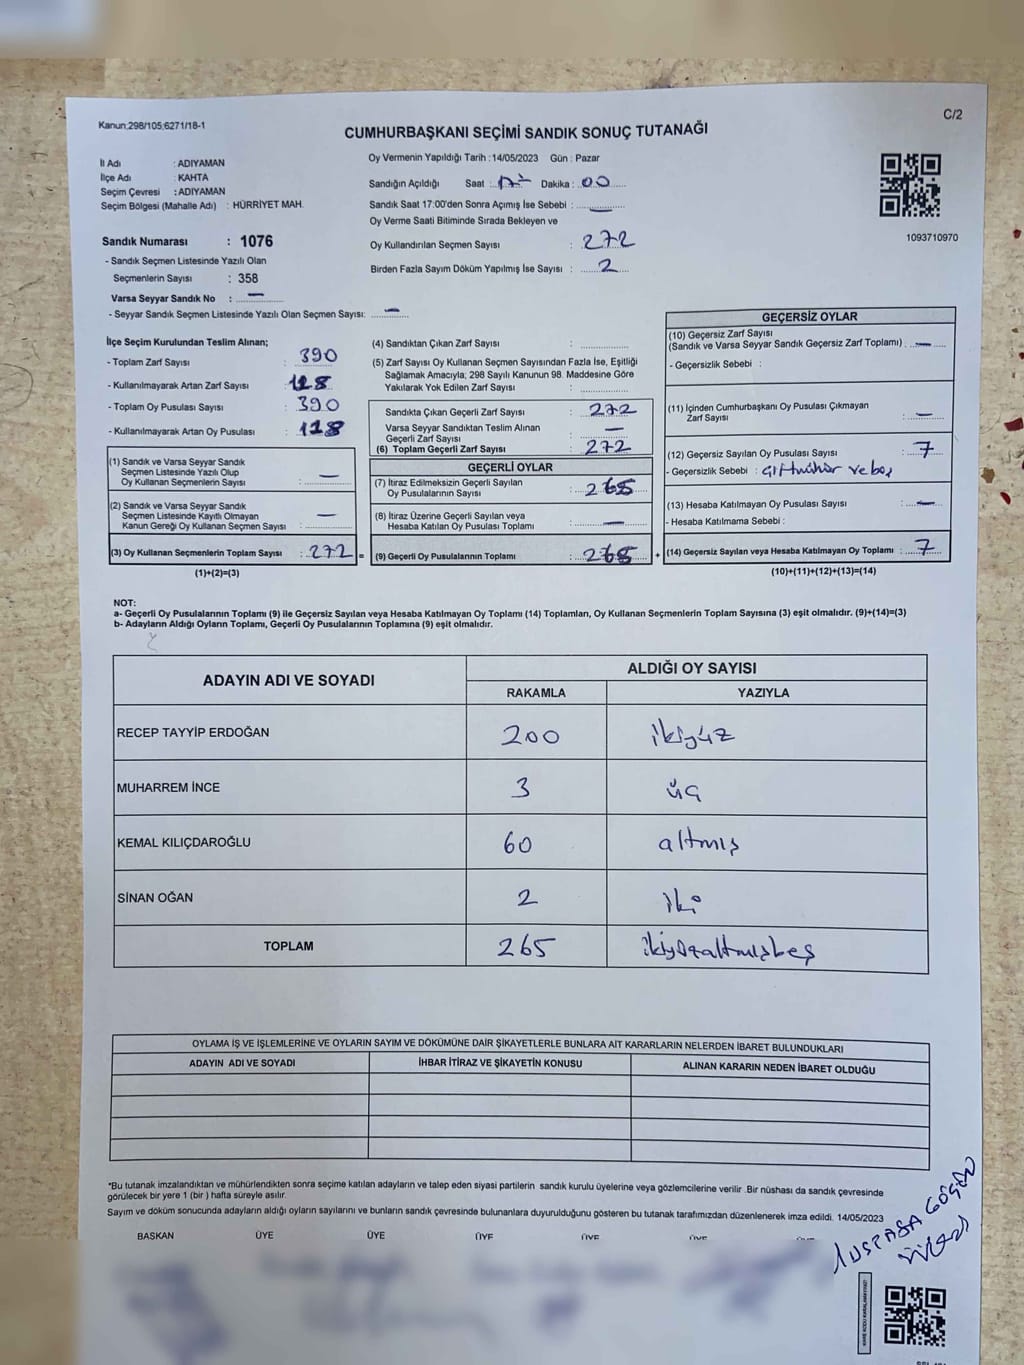 C/2
Kanun;298/105;6271/18-1
CUMHURBAŞKANI SEÇİMİ SANDIK SONUÇ TUTANAĞI
İl Adı : ADIYAMAN
İlçe Adı : KAHTA
Seçim Çevresi : ADIYAMAN
Seçim Bölgesi (Mahalle Adı) : HÜRRİYET MAH.
Sandık Numarası : 1076
- Sandık Seçmen Listesinde Yazılı Olan
Seçmenlerin Sayısı : 358
Varsa Seyyar Sandık No : —
- Seyyar Sandık Seçmen Listesinde Yazılı Olan Seçmen Sayısı: —
Oy Vermenin Yapıldığı Tarih : 14/05/2023 Gün : Pazar
Sandığın Açıldığı Saat : 17 Dakika : 00
Sandık Saat 17:00'den Sonra Açımış İse Sebebi : —
Oy Verme Saati Bitiminde Sırada Bekleyen ve
Oy Kullandırılan Seçmen Sayısı : 272
Birden Fazla Sayım Döküm Yapılmış İse Sayısı : 2
1093710970
İlçe Seçim Kurulundan Teslim Alınan;
- Toplam Zarf Sayısı : 390
- Kullanılmayarak Artan Zarf Sayısı : 118
- Toplam Oy Pusulası Sayısı : 390
- Kullanılmayarak Artan Oy Pusulası : 118
(1) Sandık ve Varsa Seyyar Sandık
Seçmen Listesinde Yazılı Olup
Oy Kullanan Seçmenlerin Sayısı : —
(2) Sandık ve Varsa Seyyar Sandık
Seçmen Listesinde Kayıtlı Olmayan
Kanun Gereği Oy Kullanan Seçmen Sayısı : —
(3) Oy Kullanan Seçmenlerin Toplam Sayısı : 272 =
(1)+(2)=(3)
(4) Sandıktan Çıkan Zarf Sayısı :
(5) Zarf Sayısı Oy Kullanan Seçmen Sayısından Fazla İse, Eşitliği
Sağlamak Amacıyla; 298 Sayılı Kanunun 98. Maddesine Göre
Yakılarak Yok Edilen Zarf Sayısı :
Sandıkta Çıkan Geçerli Zarf Sayısı : 272
Varsa Seyyar Sandıktan Teslim Alınan
Geçerli Zarf Sayısı : —
(6) Toplam Geçerli Zarf Sayısı : 272
GEÇERLİ OYLAR
(7) İtiraz Edilmeksizin Geçerli Sayılan
Oy Pusulalarının Sayısı : 265
(8) İtiraz Üzerine Geçerli Sayılan veya
Hesaba Katılan Oy Pusulası Toplamı : —
(9) Geçerli Oy Pusulalarının Toplamı : 265 +
GEÇERSİZ OYLAR
(10) Geçersiz Zarf Sayısı
(Sandık ve Varsa Seyyar Sandık Geçersiz Zarf Toplamı) : —
- Geçersizlik Sebebi :
(11) İçinden Cumhurbaşkanı Oy Pusulası Çıkmayan
Zarf Sayısı : —
(12) Geçersiz Sayılan Oy Pusulası Sayısı : 7
- Geçersizlik Sebebi : çift mühür ve boş
(13) Hesaba Katılmayan Oy Pusulası Sayısı : —
- Hesaba Katılmama Sebebi :
(14) Geçersiz Sayılan veya Hesaba Katılmayan Oy Toplamı : 7
(10)+(11)+(12)+(13)=(14)
NOT:
a- Geçerli Oy Pusulalarının Toplamı (9) ile Geçersiz Sayılan veya Hesaba Katılmayan Oy Toplamı (14) Toplamları, Oy Kullanan Seçmenlerin Toplam Sayısına (3) eşit olmalıdır. (9)+(14)=(3)
b- Adayların Aldığı Oyların Toplamı, Geçerli Oy Pusulalarının Toplamına (9) eşit olmalıdır.
ADAYIN ADI VE SOYADI ALDIĞI OY SAYISI
RAKAMLA YAZIYLA
RECEP TAYYİP ERDOĞAN 200 ikiyüz
MUHARREM İNCE 3 üç
KEMAL KILIÇDAROĞLU 60 altmış
SİNAN OĞAN 2 iki
TOPLAM 265 ikiyüzaltmışbeş
OYLAMA İŞ VE İŞLEMLERİNE VE OYLARIN SAYIM VE DÖKÜMÜNE DAİR ŞİKAYETLERLE BUNLARA AİT KARARLARIN NELERDEN İBARET BULUNDUKLARI
ADAYIN ADI VE SOYADI İHBAR İTİRAZ VE ŞİKAYETİN KONUSU ALINAN KARARIN NEDEN İBARET OLDUĞU
*Bu tutanak imzalandıktan ve mühürlendikten sonra seçime katılan adayların ve talep eden siyasi partilerin sandık kurulu üyelerine veya gözlemcilerine verilir .Bir nüshası da sandık çevresinde
görülecek bir yere 1 (bir ) hafta süreyle asılır.
Sayım ve döküm sonucunda adayların aldığı oyların sayılarını ve bunların sandık çevresinde bulunanlara duyurulduğunu gösteren bu tutanak tarafımızdan düzenlenerek imza edildi. 14/05/2023
BAŞKAN ÜYE ÜYE ÜYE ÜYE ÜYE